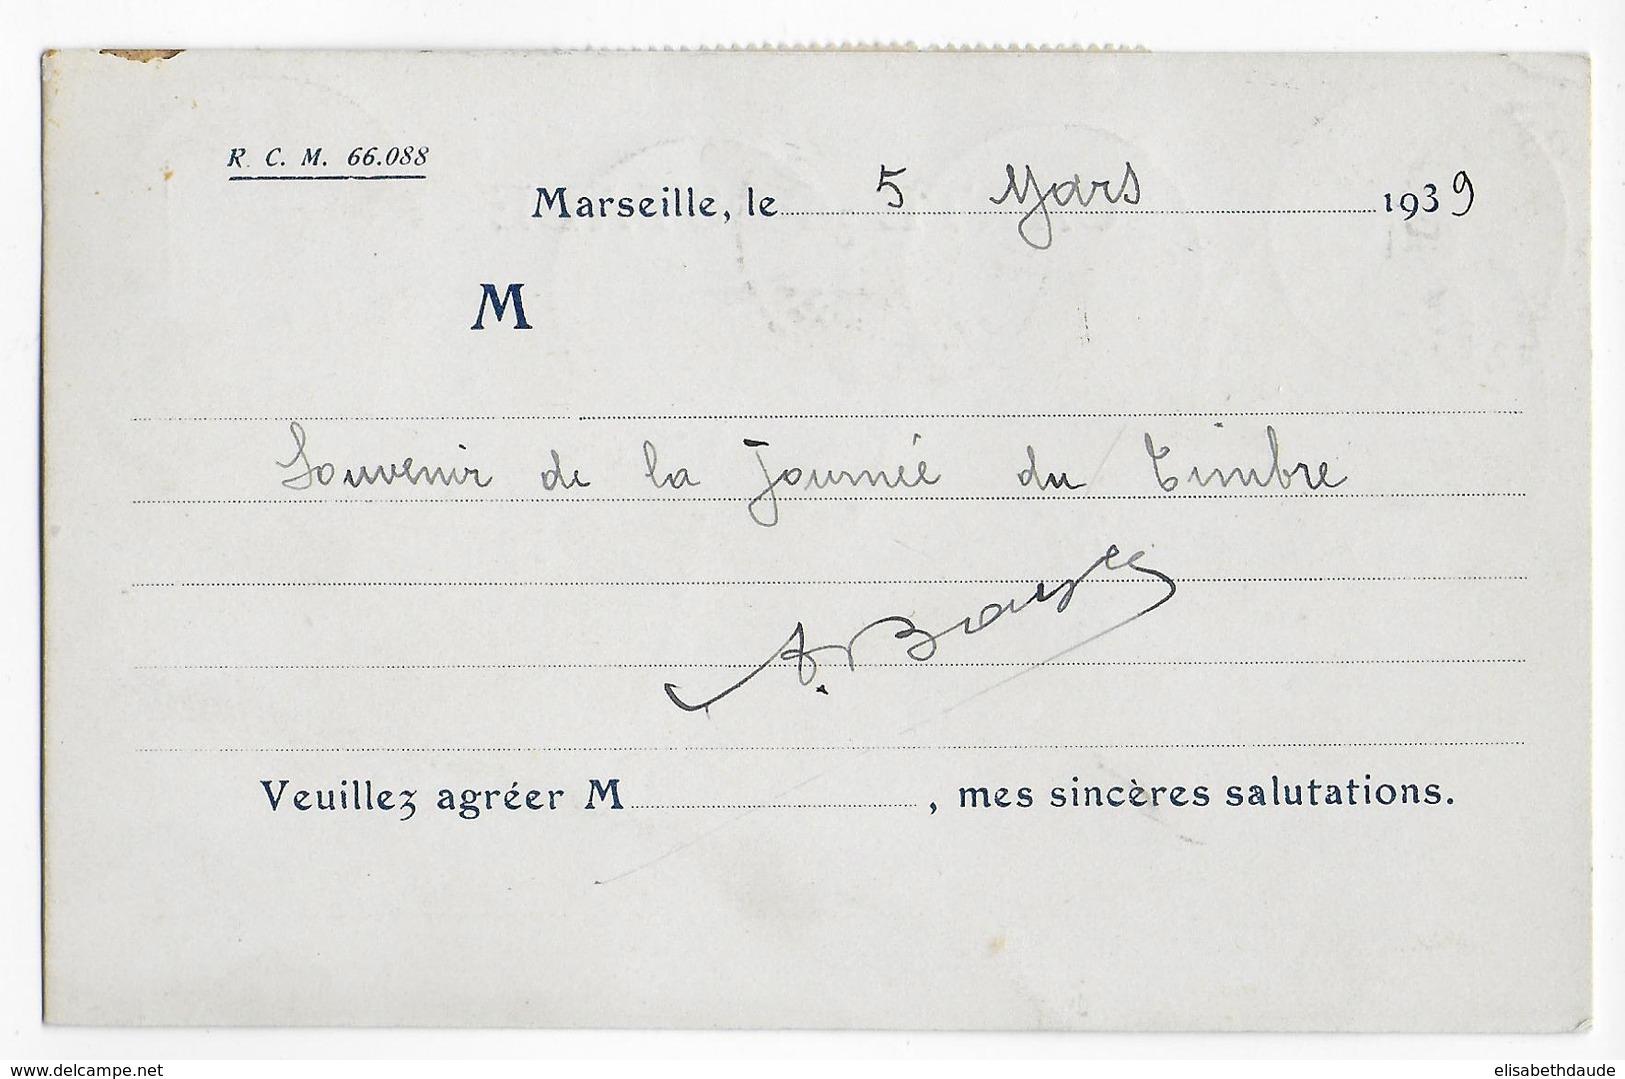 R. C. M. 66.088
Marseille, le 5 Mars 1939
M
Souvenir de la Journée du Timbre
Veuillez agréer M , mes sincères salutations.
www.delcampe.net
elisabethdaude